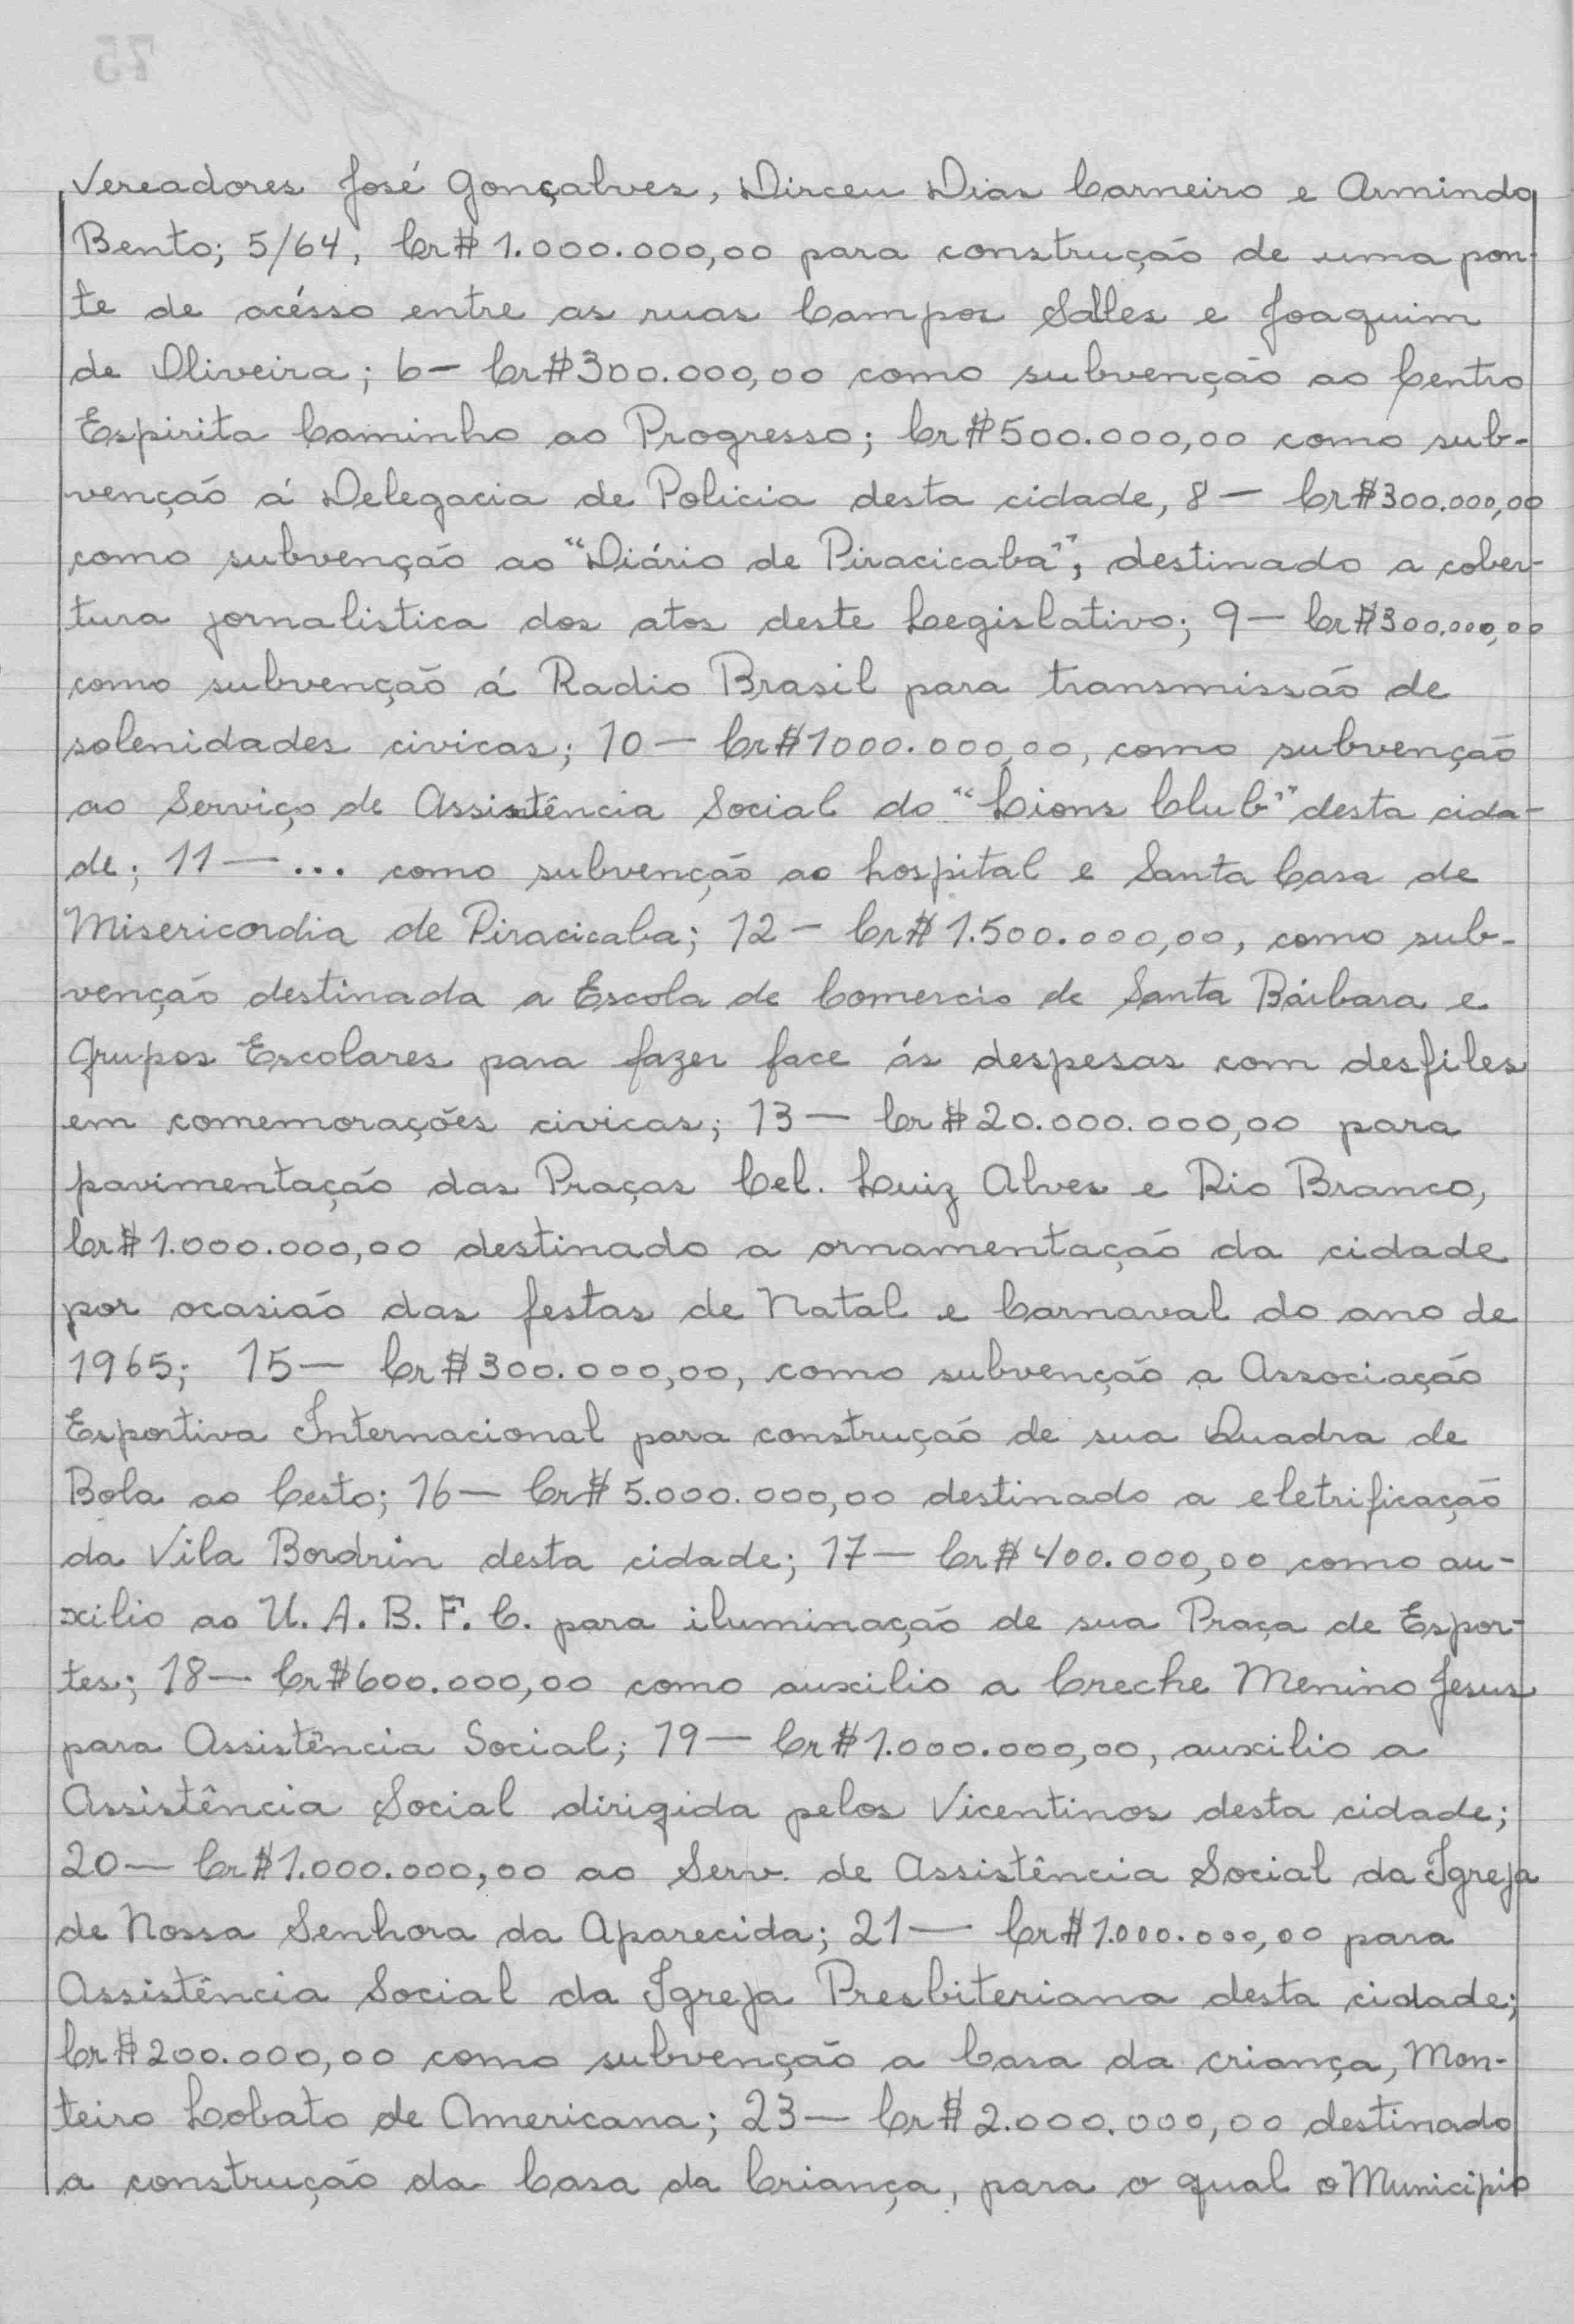 Vereadores José Gonçalves, Dirceu Dias Carneiro e Armindo
Bento; 5/64, Cr$ 1.000.000,00 para construção de uma pon-
te de acésso entre as ruas Campos Salles e Joaquim
de Oliveira; 6- Cr$300.000,00 como subvenção ao Centro
Espirita Caminho ao Progresso; Cr$500.000,00 como sub-
venção á Delegacia de Policia desta cidade, 8 — Cr$300.000,00
como subvenção ao "Diário de Piracicaba"; destinado a cober-
tura jornalistica dos atos deste Legislativo; 9 — Cr$300.000,00
como subvenção á Radio Brasil para transmissão de
solenidades civicas; 10 — Cr$1000.000,00, como subvenção
ao Serviço de Assistência Social do "Lions Club" desta cida-
de; 11 — ... como subvenção ao hospital e Santa Casa de
Misericordia de Piracicaba; 12 - Cr$ 1.500.000,00, como sub-
venção destinada a Escola de Comercio de Santa Bárbara e
Grupos Escolares para fazer face ás despesas com desfiles
em comemorações civicas; 13 — Cr$20.000.000,00 para
pavimentação das Praças Cel. Luiz Alves e Rio Branco,
Cr$1.000.000,00 destinado a ornamentação da cidade
por ocasião das festas de Natal e Carnaval do ano de
1965; 15 — Cr$300.000,00, como subvenção a Associação
Esportiva Internacional para construção de sua Quadra de
Bola ao Cesto; 16 — Cr$ 5.000.000,00 destinado a eletrificação
da Vila Bordrin desta cidade; 17 — Cr$400.000,00 como au-
xilio ao U. A. B. F. C. para iluminação de sua Praça de Espor-
tes; 18 — Cr$600.000,00 como auxilio a Creche Menino Jesus
para Assistência Social; 19 — Cr$1.000.000,00, auxilio a
Assistência Social dirigida pelos Vicentinos desta cidade;
20 — Cr$1.000.000,00 ao Serv. de Assistência Social da Igreja
de Nossa Senhora da Aparecida; 21 — Cr$1.000.000,00 para
Assistência Social da Igreja Presbiteriana desta cidade;
Cr$200.000,00 como subvenção a Casa da criança, Mon-
teiro Lobato de Americana; 23 — Cr$2.000.000,00 destinado
a construção da Casa da Criança, para o qual o Municipio